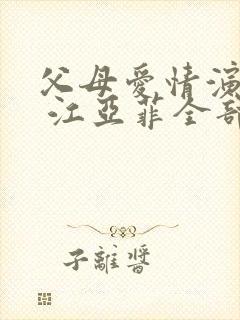 父母愛情演
江亞菲全部
子離醬